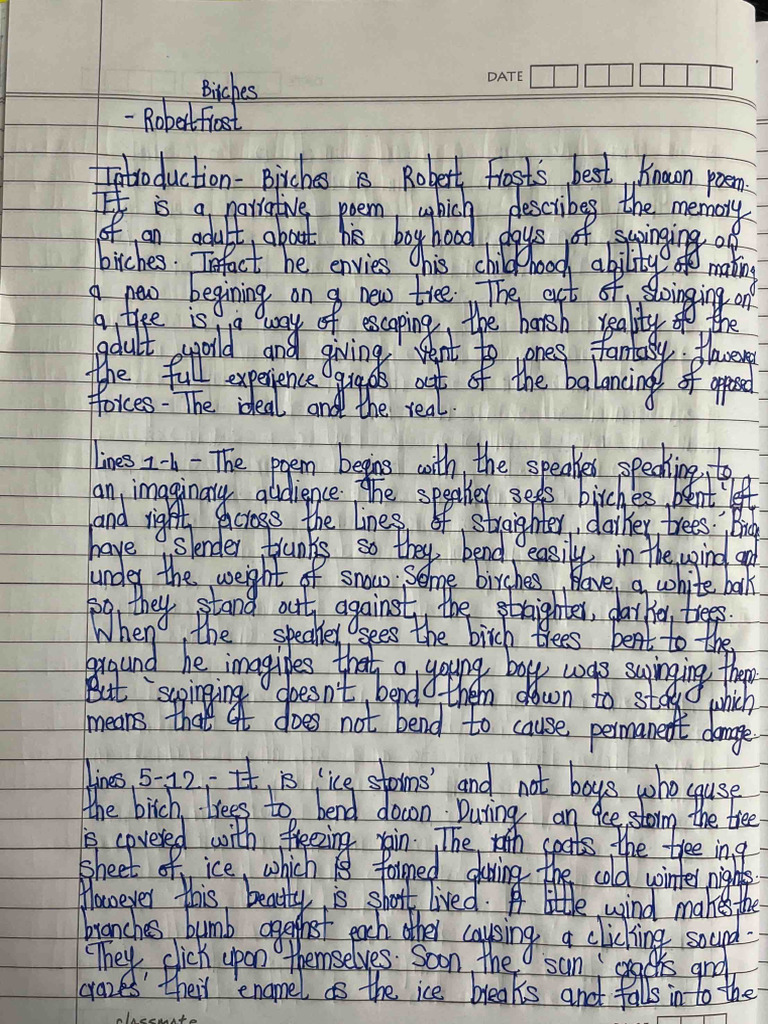 DATE
Birches
- Robert Frost
Introduction - Birches is Robert Frost's best known poem.
It is a narrative poem which describes the memory
of an adult about his boyhood days of swinging on
birches. Infact he envies his childhood ability of making
a new begining on a new tree. The act of swinging on
a tree is a way of escaping the harsh reality of the
adult world and giving vent to ones fantasy. However
the full experience grows out of the balancing of opposed
forces - The ideal and the real.
Lines 1-4 - The poem begins with the speaker speaking to
an imaginary audience. The speaker sees birches bent 'left
and right across the lines of straighter, darker trees.' Birch
have slender trunks so they bend easily in the wind and
under the weight of snow. Some birches have a white bark
so they stand out against the straighter, darker trees.
When the speaker sees the birch trees bent to the
ground he imagines that a young boy was swinging them.
But 'swinging doesn't bend them down to stay' which
means that it does not bend to cause permanent damage.
Lines 5-12 - It is 'ice storms' and not boys who cause
the birch trees to bend down. During an ice storm the tree
is covered with freezing rain. The rain coats the tree in a
sheet of ice which is formed during the cold winter nights.
However this beauty is short lived. A little wind makes the
branches bumb against each other causing a clicking sound -
'They click upon themselves. Soon the sun 'cracks and
crazes' their enamel as the ice breaks and falls in to the
classmate